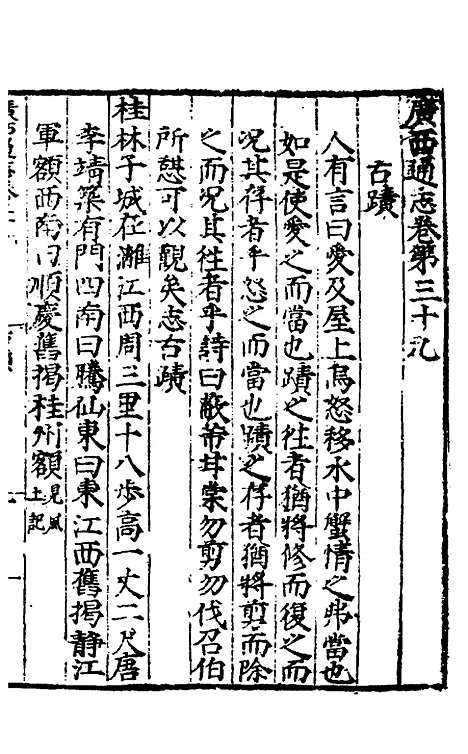 廣西通志卷第三十九
古蹟
人有言曰愛及屋上烏怒移水中蟹情之弗當也
如是使愛之而當也蹟之往者猶將修而復之而
況其存者乎怒之而當也蹟之存者猶將剪而除
之而況其往者乎詩曰蔽芾甘棠勿剪勿伐召伯
所憇可以觀矣志古蹟
桂林子城在灕江西周三里十八歩高一丈二尺唐
李靖築有門四南曰騰仙東曰東江西舊揭静江
軍額西南曰順慶舊掲桂州額見風土記